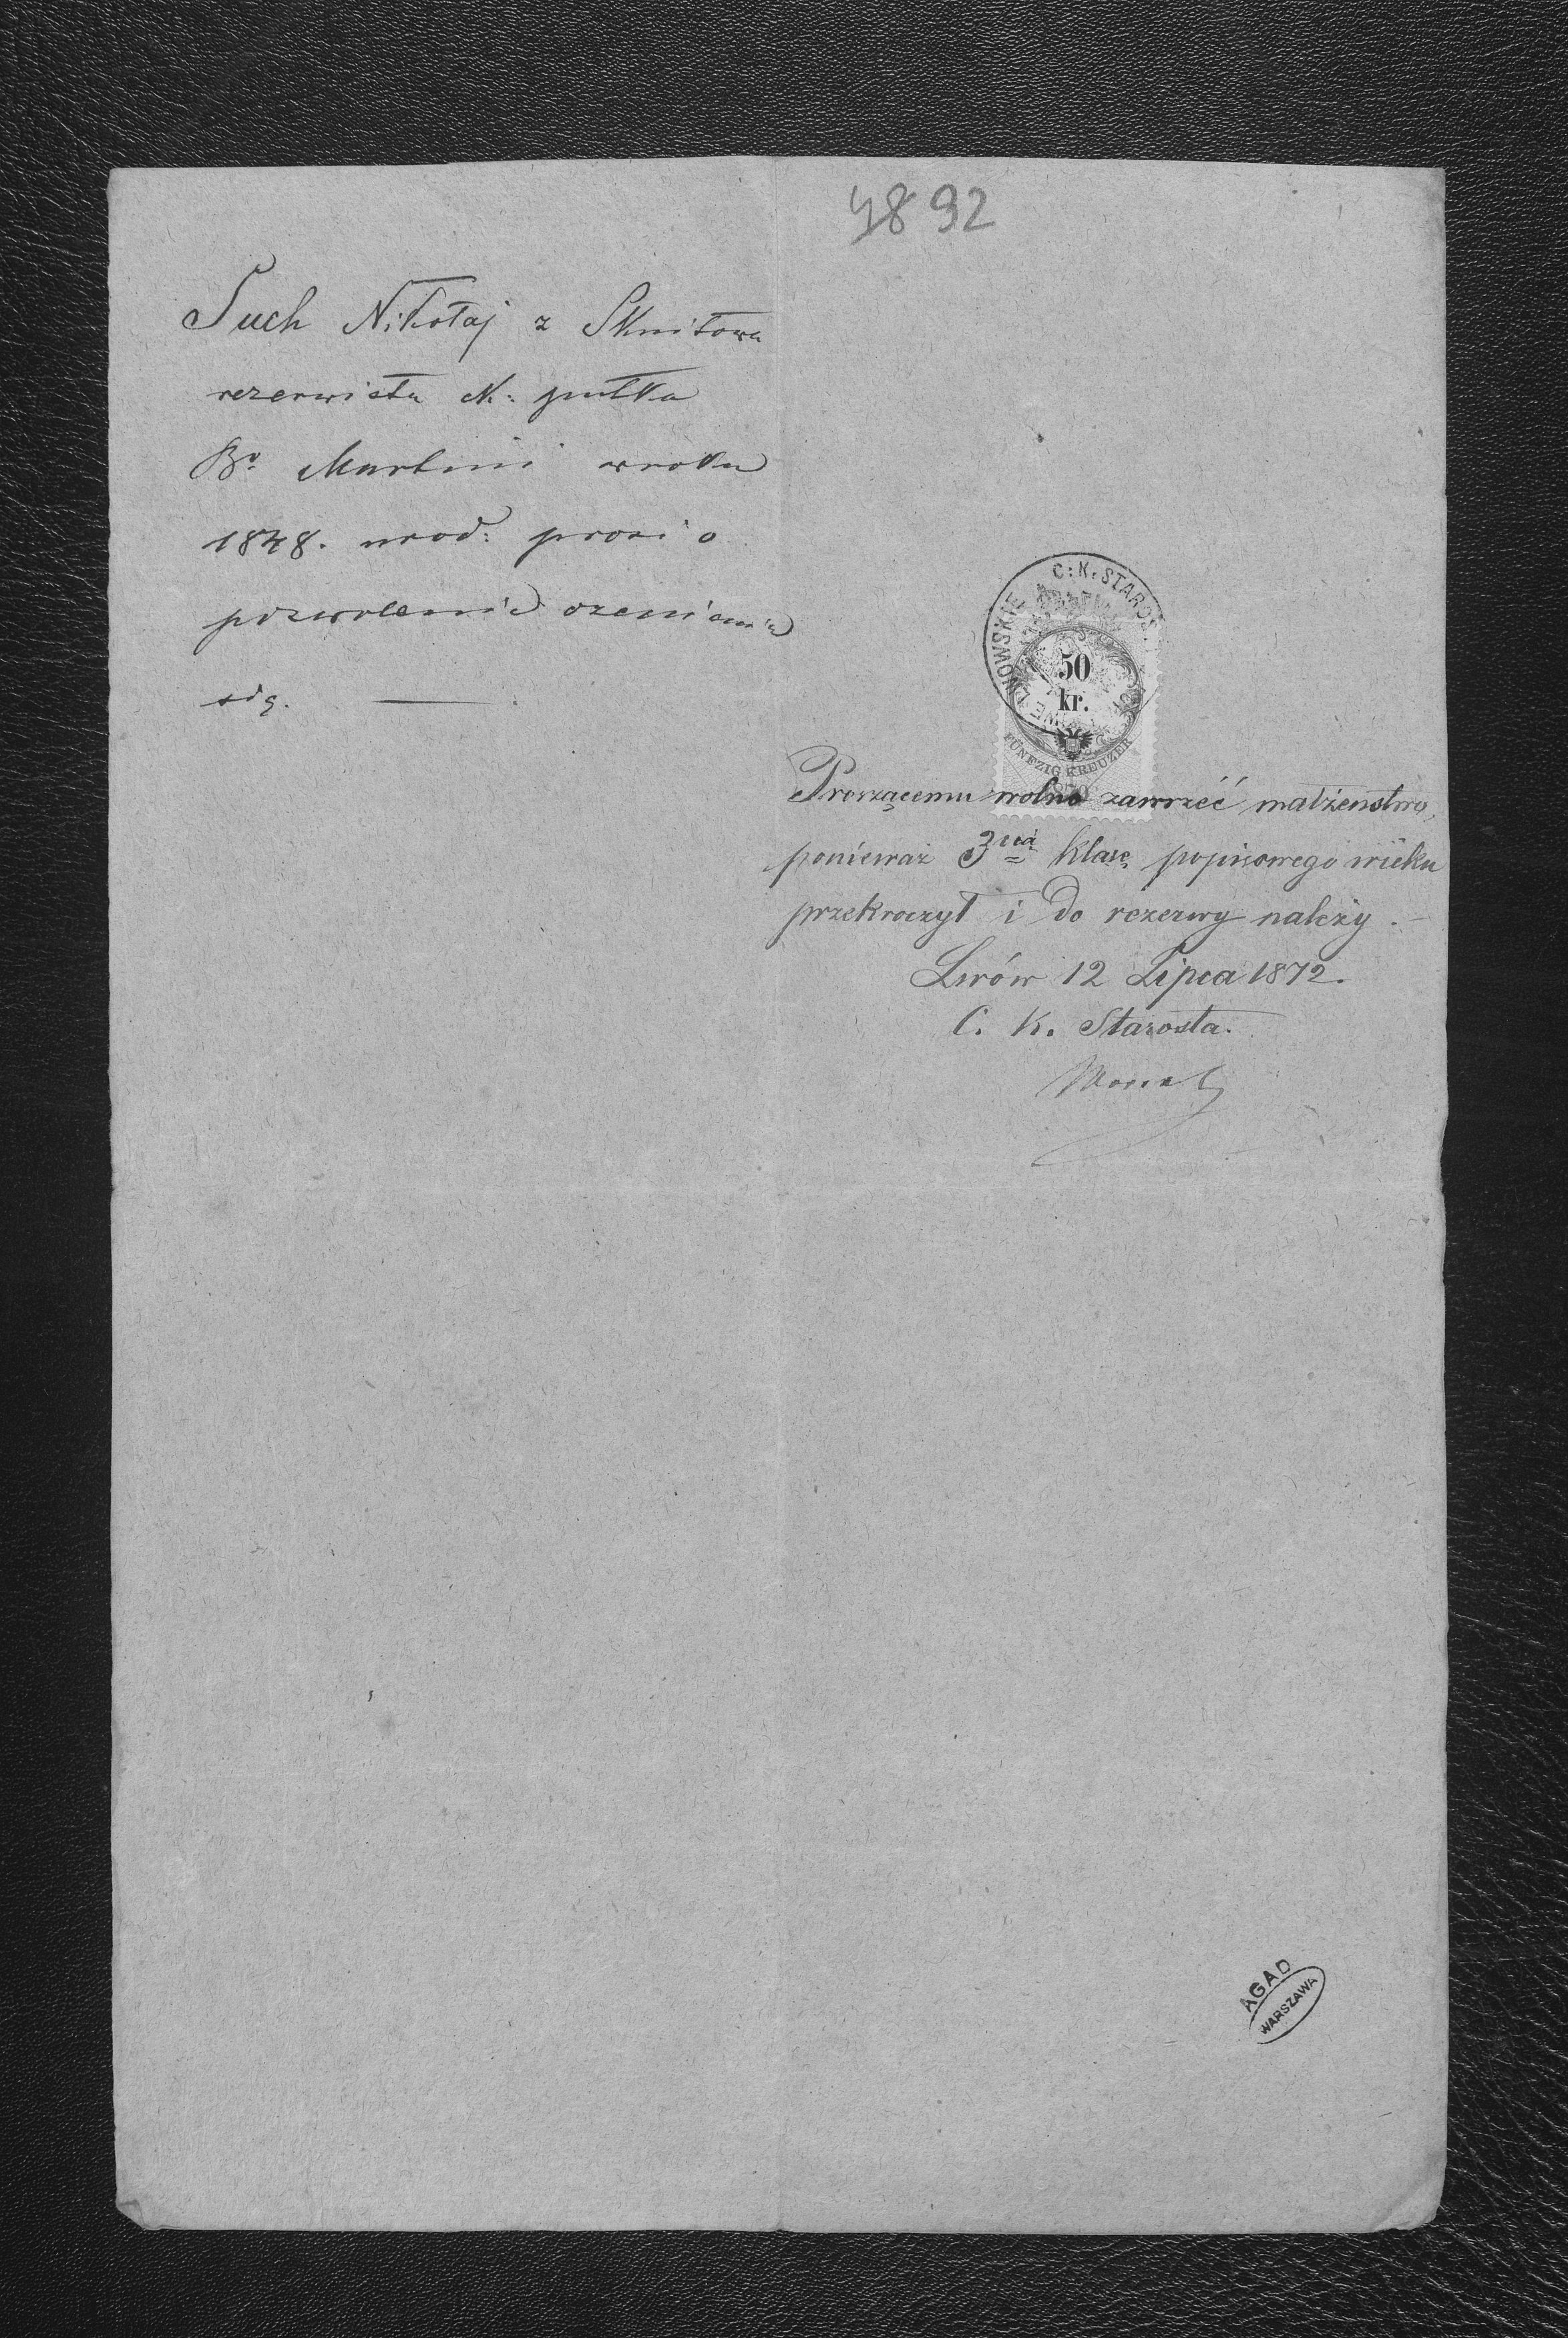 4892
Such Nikołaj z Skniłowa
rezerwista N: pułku
Br Martini w roku
1848. urod: prosi o
pozwolenie ożenienia
się.
C: K. STAROS
LWOWSKIE
50
kr.
FÜNFZIG KREUZER
Proszącemu wolno zawrzeć małżeństwo,
ponieważ 3cią klasę popisowego wieku
przekroczył i do rezerwy należy.
Lwów 12 Lipca 1872.
C. K. Starosta.
AGAD
WARSZAWA